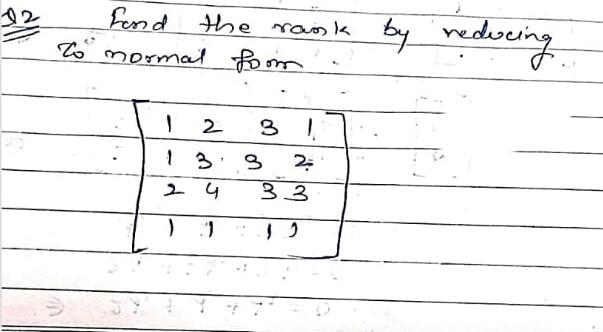 Q2 Find the rank by reducing
to normal form.
1 2 3 1
1 3 3 2
2 4 3 3
1 1 1 1